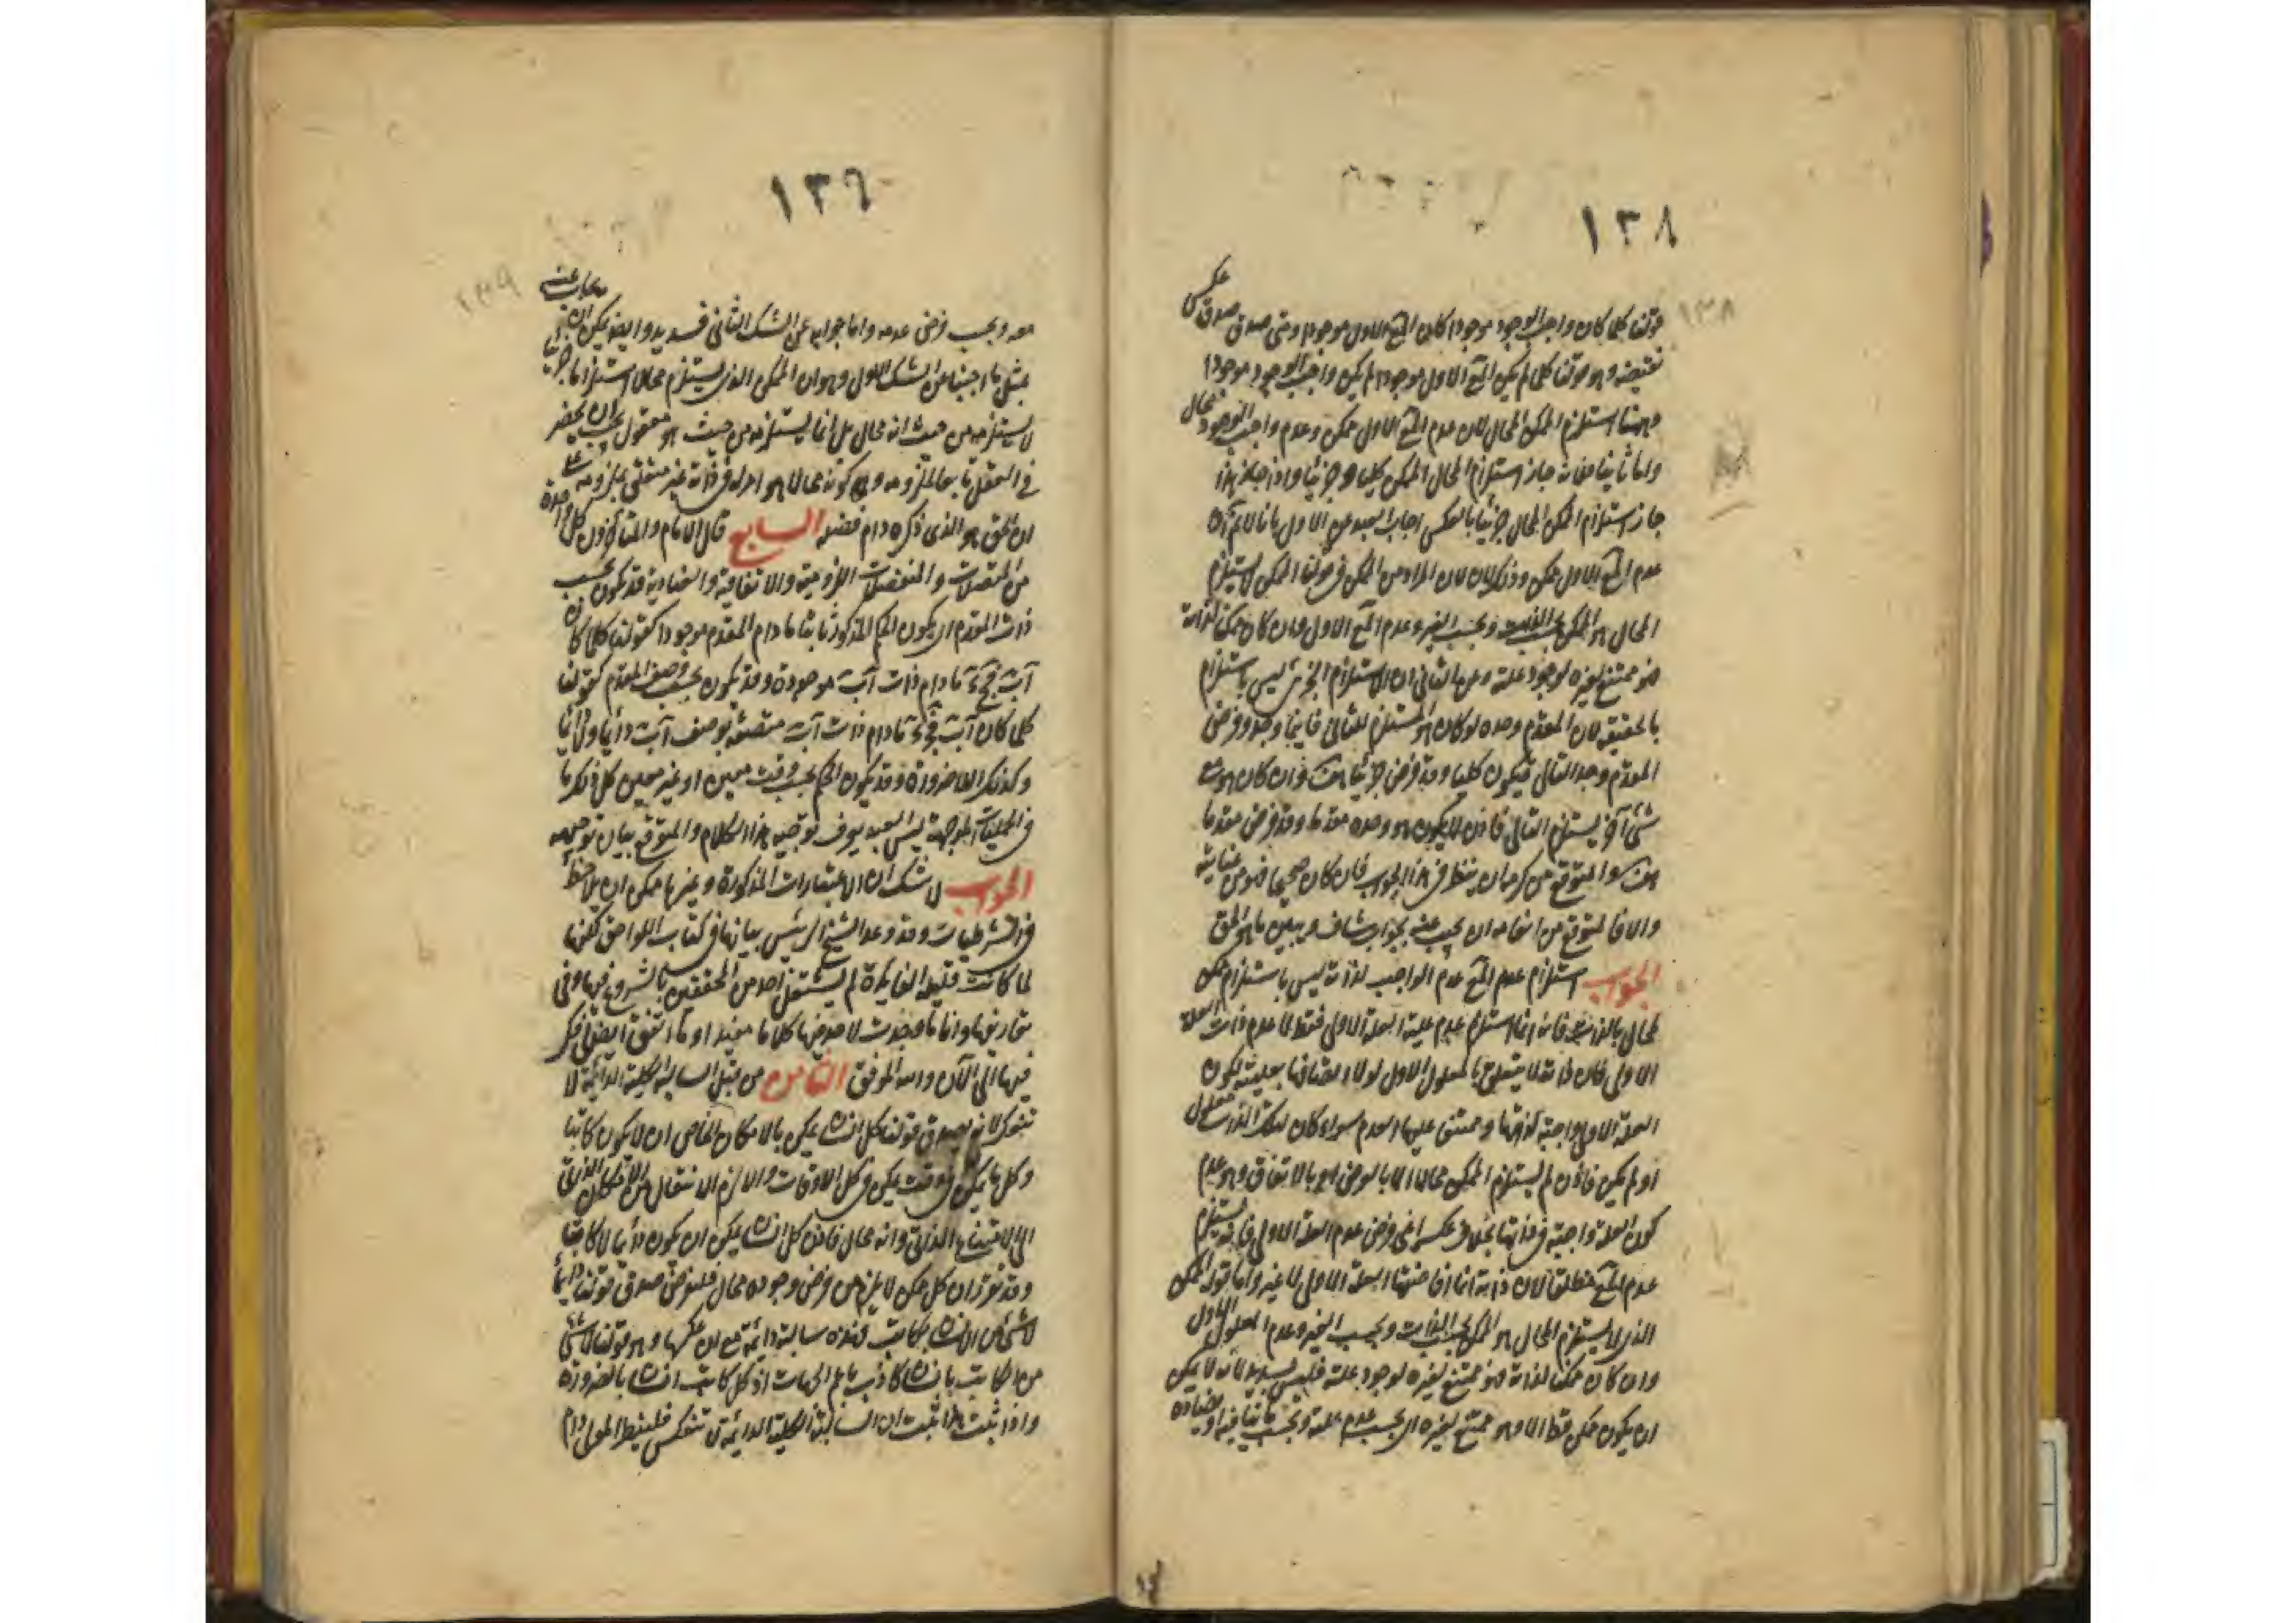 ١٣٨
١٣٨
قولنا كلما كان واجب الوجود موجودا كان المع الاول موجودا ومتى صدق صدق عكس
نقيضه وهو قولنا كلما لم يكن المع الاول موجودا لم يكن واجب الوجود موجودا
وههنا استلزم الممكن المحال لان عدم المع الاول ممكن وعدم واجب الوجود محال
واما ثانيا فانه جاز استلزام المحال الممكن كليا وجزئيا واذا جاز هذا
جاز استلزام الممكن المحال جزئيا بالعكس اجاب العبد عن الاول بانا لا نم ان
عدم المع الاول ممكن وذلك لان المراد من الممكن في قولنا الممكن لا يستلزم
المحال هو الممكن بحسب الذات وبحسب الغير وعدم المع الاول وان كان ممكنا لذاته
فهو ممتنع لغيره لوجود علته وعن الثاني ان الاستلزام الجزئي ليس باستلزام
بالحقيقة لان المقدم وحده لو كان هو المستلزم للتالي فاينما وجد وفرض
المقدم وجد التالي فيكون كليا وقد فرض جزئيا هف وان كان هو مع
شئ آخر يستلزم التالي فاذن لا يكون هو وحده مقدما وقد فرض مقدما
هف والمتوقع من كرمه ان ينظر في هذا الجواب فان كان صحيحا فهو من عنايته
والا فالمتوقع من انعامه ان يجيب عنه بجواب شاف ويبين ما هو الحق
الجواب استلزام عدم المع عدم الواجب لذاته ليس باستلزام ممكن
لمحال بالذات فانه انما استلزم عدم علية العلة الاولى فقط لا عدم ذات العلة
الاولى فان ذاته لا يتعلق بالمعلول الاول لولا اتصافها بعلية لكون
العلة الاولى واجبة لذاتها وممتنع عليها العدم سواء كان لتلك الذات معلول
او لم يكن فاذن لم يستلزم الممكن محالا الا بالعرض او بالاتفاق وهو عدم
كون العلة واجبة في ذاتها بخلاف عكسه اعني فرض عدم العلة الاولى فانه يستلزم
عدم المع مطلقا لان ذاته انما افاضتها العلة الاولى لا غير واما قوله الممكن
الذي لا يستلزم المحال هو الممكن بحسب الذات وبحسب الغير وعدم المعلول الاول
وان كان ممكنا لذاته فهو ممتنع لغيره لوجود علته فليس بسديد لانه لا يمكن
ان يكون ممكن قط الا وهو ممتنع لغيره اي بحسب عدم علته وبحسب ما ينافيه او يضاده
١٣٩
١٣٩
معه وبحسب فرض عدمه واما جوابه عن الشك الثاني فسديد وايضا يمكن ان يجاب عنه
بمثل ما اجبنا عن الشك الاول وهو ان الممكن الذي يستلزم محالا استلزاما جزئيا
لا يستلزمه من حيث انه محال بل انما يستلزمه من حيث هو معقول يجب ان يحضر
في العقل تابعا لملزومه و كونه محالا هو امر له في ذاته غير متعلق بملزومه على
ان الحق هو الذي ذكره دام فضله السابع قال الامام والمتأخرون كل واحدة
من المتصلات والمنفصلات اللزومية والاتفاقية والعنادية قد تكون بحسب
ذات المقدم اي يكون الحكم المذكور ثابتا ما دام المقدم موجودا كقولنا كلما كان
آب فج د ما دام ذات آب موجودة وقد يكون بحسب وصف المقدم كقولنا
كلما كان آب فج د ما دام ذات آب متصفة بوصف آب دائما ولا دائما
وكذلك اللاضرورة وقد يكون الحكم بحسب وقت معين او غير معين كل ذلك كما
في الحمليات الموجهة ليس العبد يعرف توجيه هذا الكلام والمتوقع بيان توجيهه
الجواب لا شك ان الاعتبارات المذكورة وغيرها ممكن ان يلاحظ
في الشرطيات وقد وعد الشيخ الرئيس بيانها في كتاب اللواحق لكنها
لما كانت قليلة الفايدة لم يشتغل احد من المحققين بالشروع فيها وفي
تفاريعها وانا ما وجدت لاحد فيها كلاما مفيدا وما اتفق ايضا لي فكر
فيها الى الآن والله الموفق الثامن من قبل السالبة الكلية الدائمة لا
تنعكس لانه يصدق قولنا كل انسان يمكن بالامكان الخاص ان لا يكون كاتبا
وكل ما يمكن في وقت يمكن في كل الاوقات والا لزم الانتقال من الامكان الذاتي
الى الامتناع الذاتي وانه محال فاذن كل انسان يمكن ان يكون دائما لا كاتبا
وقد تقرر ان كل ممكن لا يلزم من فرض وجوده محال فلنفرض صدق قولنا دائما
لا شئ من الانسان بكاتب فهذه سالبة دائمة مع ان عكسها وهو قولنا لا شئ
من الكاتب بانسان كاذب باعم الجهات اذ كل كاتب انسان بالضرورة
واذا ثبت هذا ثبت ان السالبة الكلية الدائمة لا تنعكس فلينظر المولى دام